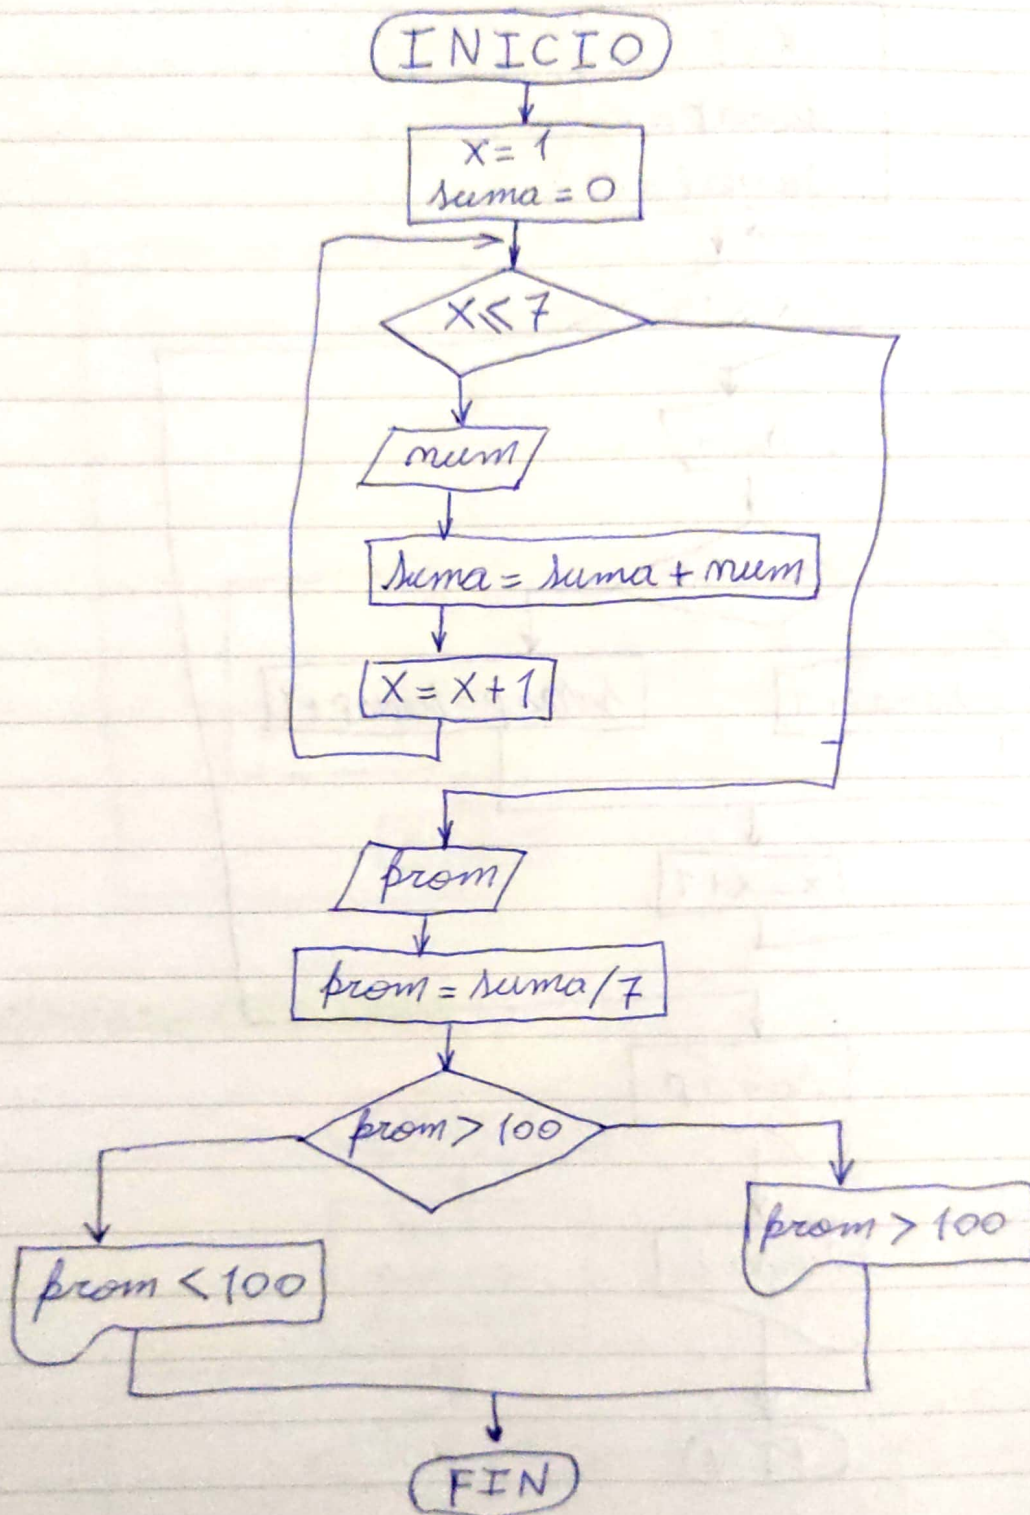 INICIO
x = 1
suma = 0
x ≤ 7
num
suma = suma + num
x = x + 1
prom
prom = suma / 7
prom > 100
prom > 100
prom < 100
FIN